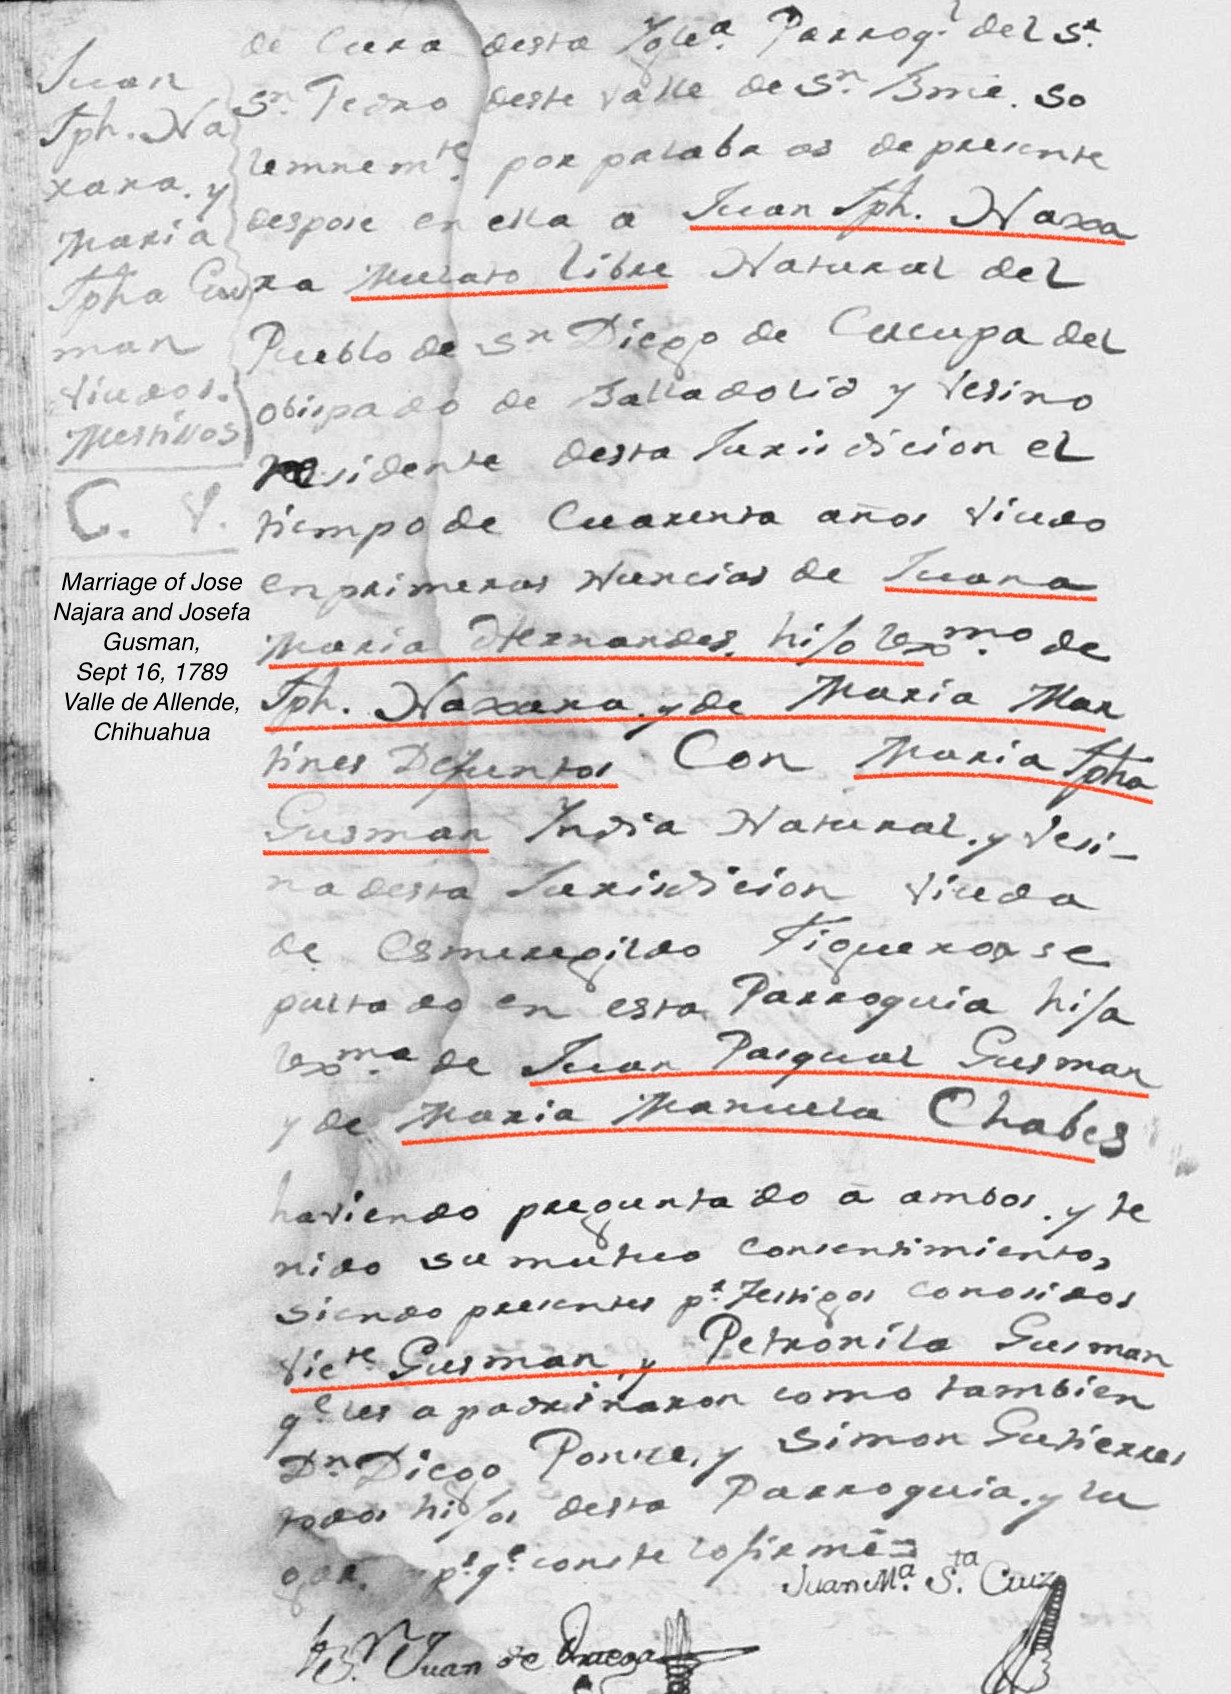 Juan
Jph. Na
xara. y
Maria
Jpha Gus
man
viudos.
Mestisos
C. V.
Marriage of Jose
Najara and Josefa
Gusman,
Sept 16, 1789
Valle de Allende,
Chihuahua
de Cura desta Yglea. Parroql. del Sr.
Sn. Pedro deste valle de Sn. Bme. so
lemnemte. por palabras de presente
despose en ella a Juan Jph. Naxa
ra Mulato libre Natural del
Pueblo de Sn Diego de Cucupa del
obispado de Balladolid y vesino
residente desta Jurisdicion el
tiempo de Cuarenta años viudo
en primeras Nuncias de Juana
Maria Hernandes, hijo lexmo. de
Jph. Naxara, y de Maria Mar
tines Defuntos Con Maria Jpha
Gusman India Natural, y vesi-
na desta Jurisdicion viuda
de Esmeregildo Figueroa se
pultado en esta Parroquia hija
lexma. de Juan Pasqual Gusman
y de Maria Manuela Chabes
haviendo preguntado a ambos, y te
nido su mutuo consentimiento,
siendo presentes pr. Testigos conosidos
Victe Gusman, y Petronila Gusman
qe. les apadrinaron como tambien
Dn. Diego Ponse, y Simon Gutierres
todos hijos desta Parroquia, y lu
gar. pa. qe. conste lo firmé=
Juan Ma. Sta. Cruz
Br. Juan de